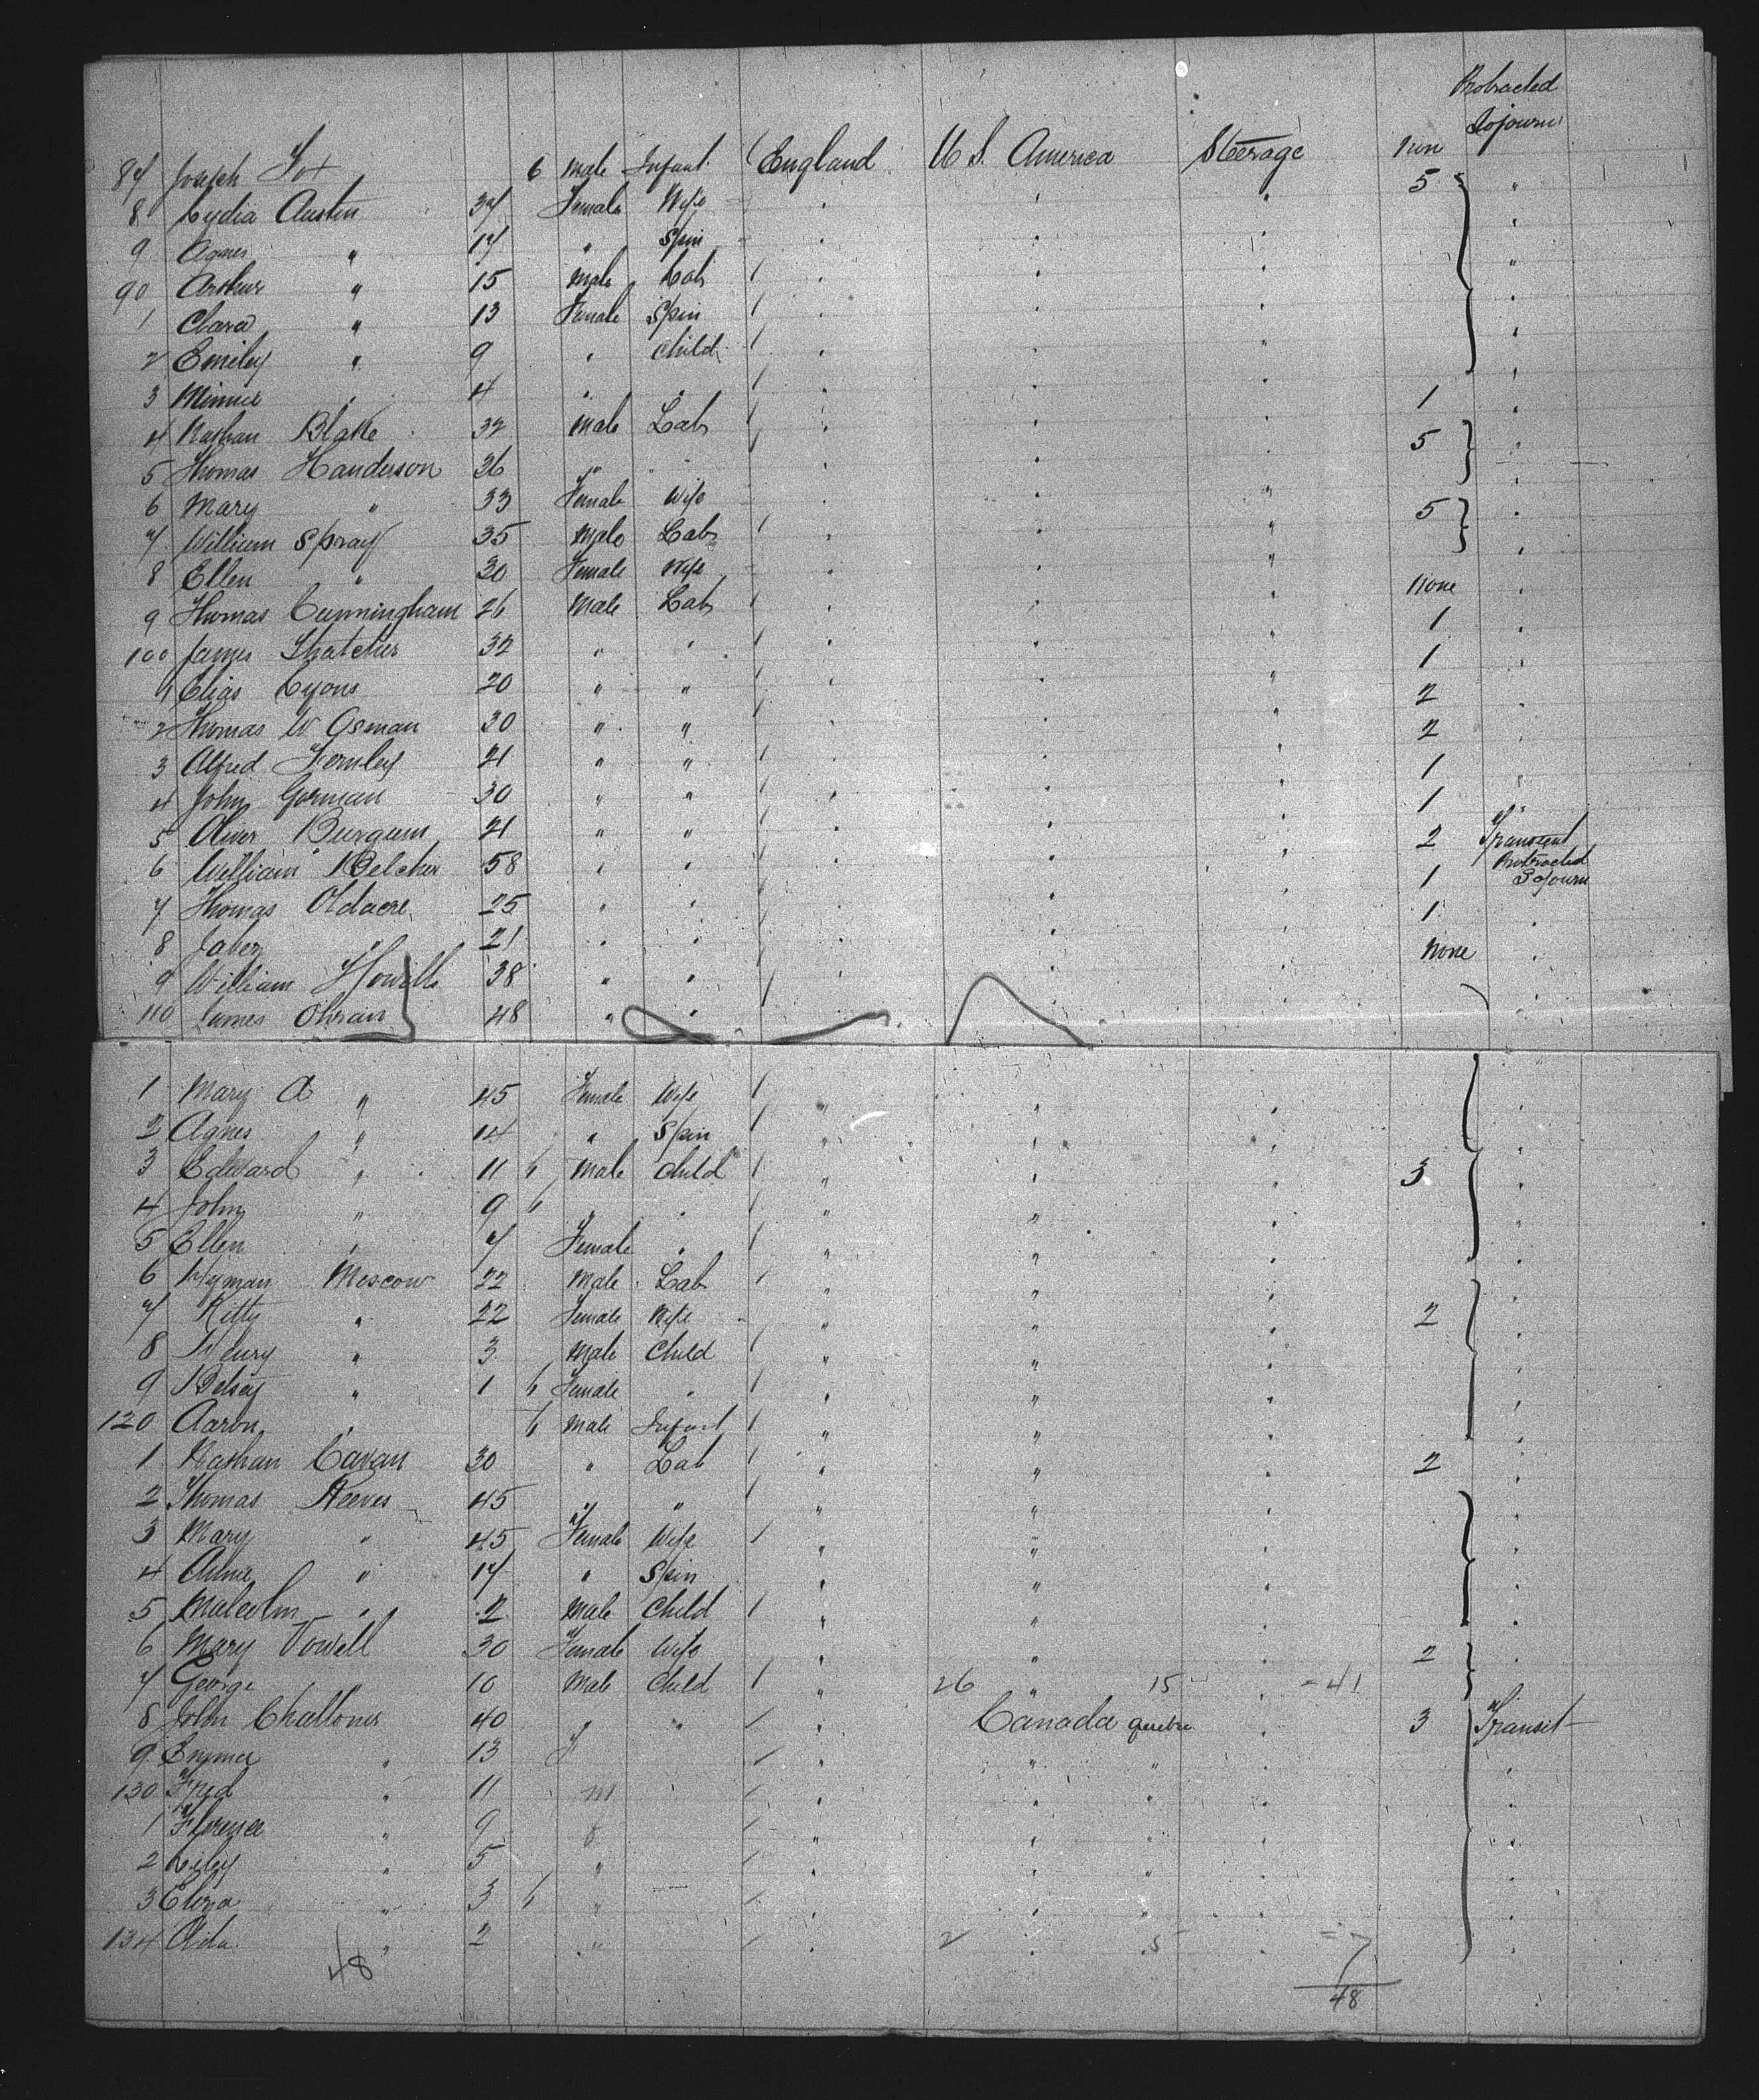 Protracted
Sojourn
87 Joseph Fox 6 Male Infant England U S. America Steerage Non
8 Lydia Austin 37 Female Wife " " " 5 "
9 Agnes " 17 " Spin " " " "
90 Arthur " 15 Male Lab " " " "
1 Clara " 13 Female Spin " " " "
2 Emiley " 9 " Child " " " "
3 Minnie " 4 " " " " " "
4 Nathan Blake 32 Male Lab " " " 1 "
5 Thomas Handerson 36 " " " " " 5 "
6 Mary " 33 Female Wife " " " "
7 William Spray 35 Male Lab " " " 5 "
8 Ellen " 30 Female Wife " " " "
9 Thomas Cunningham 26 Male Lab " " " None "
100 James Thatcher 32 " " " " " 1 "
1 Elias Lyons 20 " " " " " 1 "
2 Thomas W Osman 30 " " " " " 2 "
3 Alfred Fernley 21 " " " " " 2 "
4 John Gorman 30 " " " " " 1 "
5 Oliver Burgum 21 " " " " " 1 "
6 William Belcher 58 " " " " " 2 Transient
7 Thomas Oldacre 25 " " " " " 1 Protracted Sojourn
8 Jabez 21 " " " " " 1 "
9 William Howells 38 " " " " " None "
110 James Ohran 48 " " " " " "
1 Mary A " 45 Female Wife " " " "
2 Agnes " 14 " Spin " " " "
3 Edward " 11 6 Male Child " " " 3 "
4 John " 9 6 " " " " " "
5 Ellen " 7 Female " " " " "
6 Hyman Moscow 22 Male Lab " " " "
7 Kitty " 22 Female Wife " " " 2 "
8 Henry " 3 Male Child " " " "
9 Betsey " 1 6 Female " " " " "
120 Aaron " 6 Male Infant " " " "
1 Nathan Cavan 30 " Lab " " " 2 "
2 Thomas Reeves 45 " " " " " "
3 Mary " 45 Female Wife " " " "
4 Annie " 17 " Spin " " " "
5 Malcolm " 2 Male Child " " " "
6 Mary Vowell 30 Female Wife " " " 2 "
7 George " 10 Male Child " 26 " 15 " = 41 "
8 John Challoner 40 " " " Canada Quebec " 3 Transit
9 Emma " 13 F " " " " "
130 Fred " 11 M " " " " "
1 Florence " 9 F " " " " "
2 Liley " 5 " " " " " "
3 Eliza " 3 6 " " " " " "
134 Ada " 2 " " 2 " 5 " = 7 "
48 48